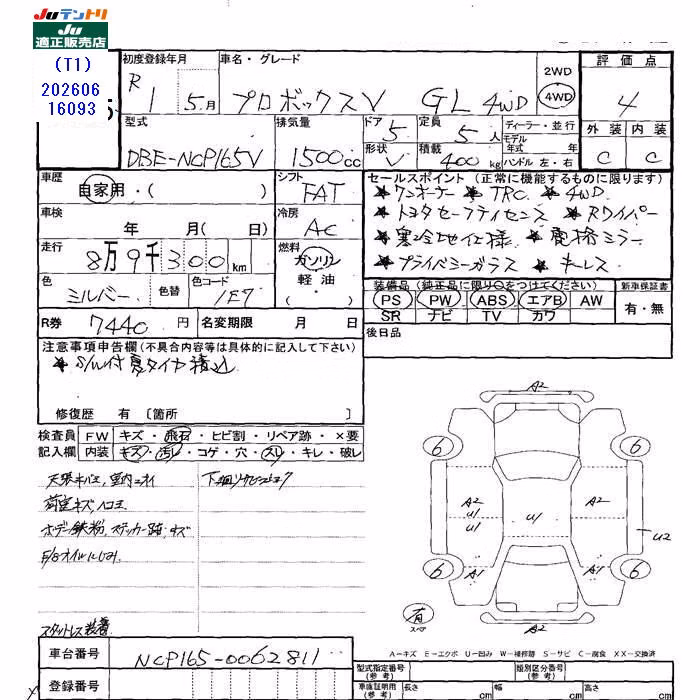 JUテントリ
JU
適正販売店
(T1)
202606
16093
初度登録年月
R 1 5月
車名・グレード
プロボックスV GL 4WD
2WD
4WD
評価点
4
型式
DBE-NCP165V
排気量
1500cc
ドア
5
定員
5人
形状
V
積載
400kg
ディーラー・並行
モデル
年式 年
ハンドル 左・右
外装 内装
C C
車歴
自家用・( )
シフト
FAT
車検
年 月( 日)
冷房
AC
走行
8万9千300km
燃料
ガソリン
軽油
( )
色
シルバー
色替
色コード
1E7
R券 7440円
名変期限 月 日
セールスポイント(正常に機能するものに限ります)
★ワンオーナー ★TRC ★4WD
★トヨタセーフティセンス ★Rワイパー
★寒冷地仕様 ★電格ミラー
★プライバシーガラス ★キーレス
装備品(純正品に限り○をつけてください)
PS PW ABS エアB AW
SR ナビ TV カワ
新車保証書
有・無
後日品
注意事項申告欄(不具合内容等は具体的に記入して下さい)
★S/W付夏タイヤ積込
修復歴 有〔箇所 〕
検査員
記入欄
FW キズ・飛石・ヒビ割・リペア跡・×要
内装 キズ・汚レ・コゲ・穴・スレ・キレ・破レ
荷室キズ、ヘコミ
ボデー鉄粉、ステッカー跡、キズ
スタットレス装着
A2
6 6
A2 A2
U1
U1 U1
U2
A1 A1
6 6
有
スペア
A2
A-キズ E-エクボ U-凹み W-補修跡 S-サビ C-腐食 XX-交換済
車台番号
NCP165-0062811
登録番号
型式指定番号
(参考)
類別区分番号
(参考)
車庫証明用
(参考)
長さ cm
幅 cm
高さ cm